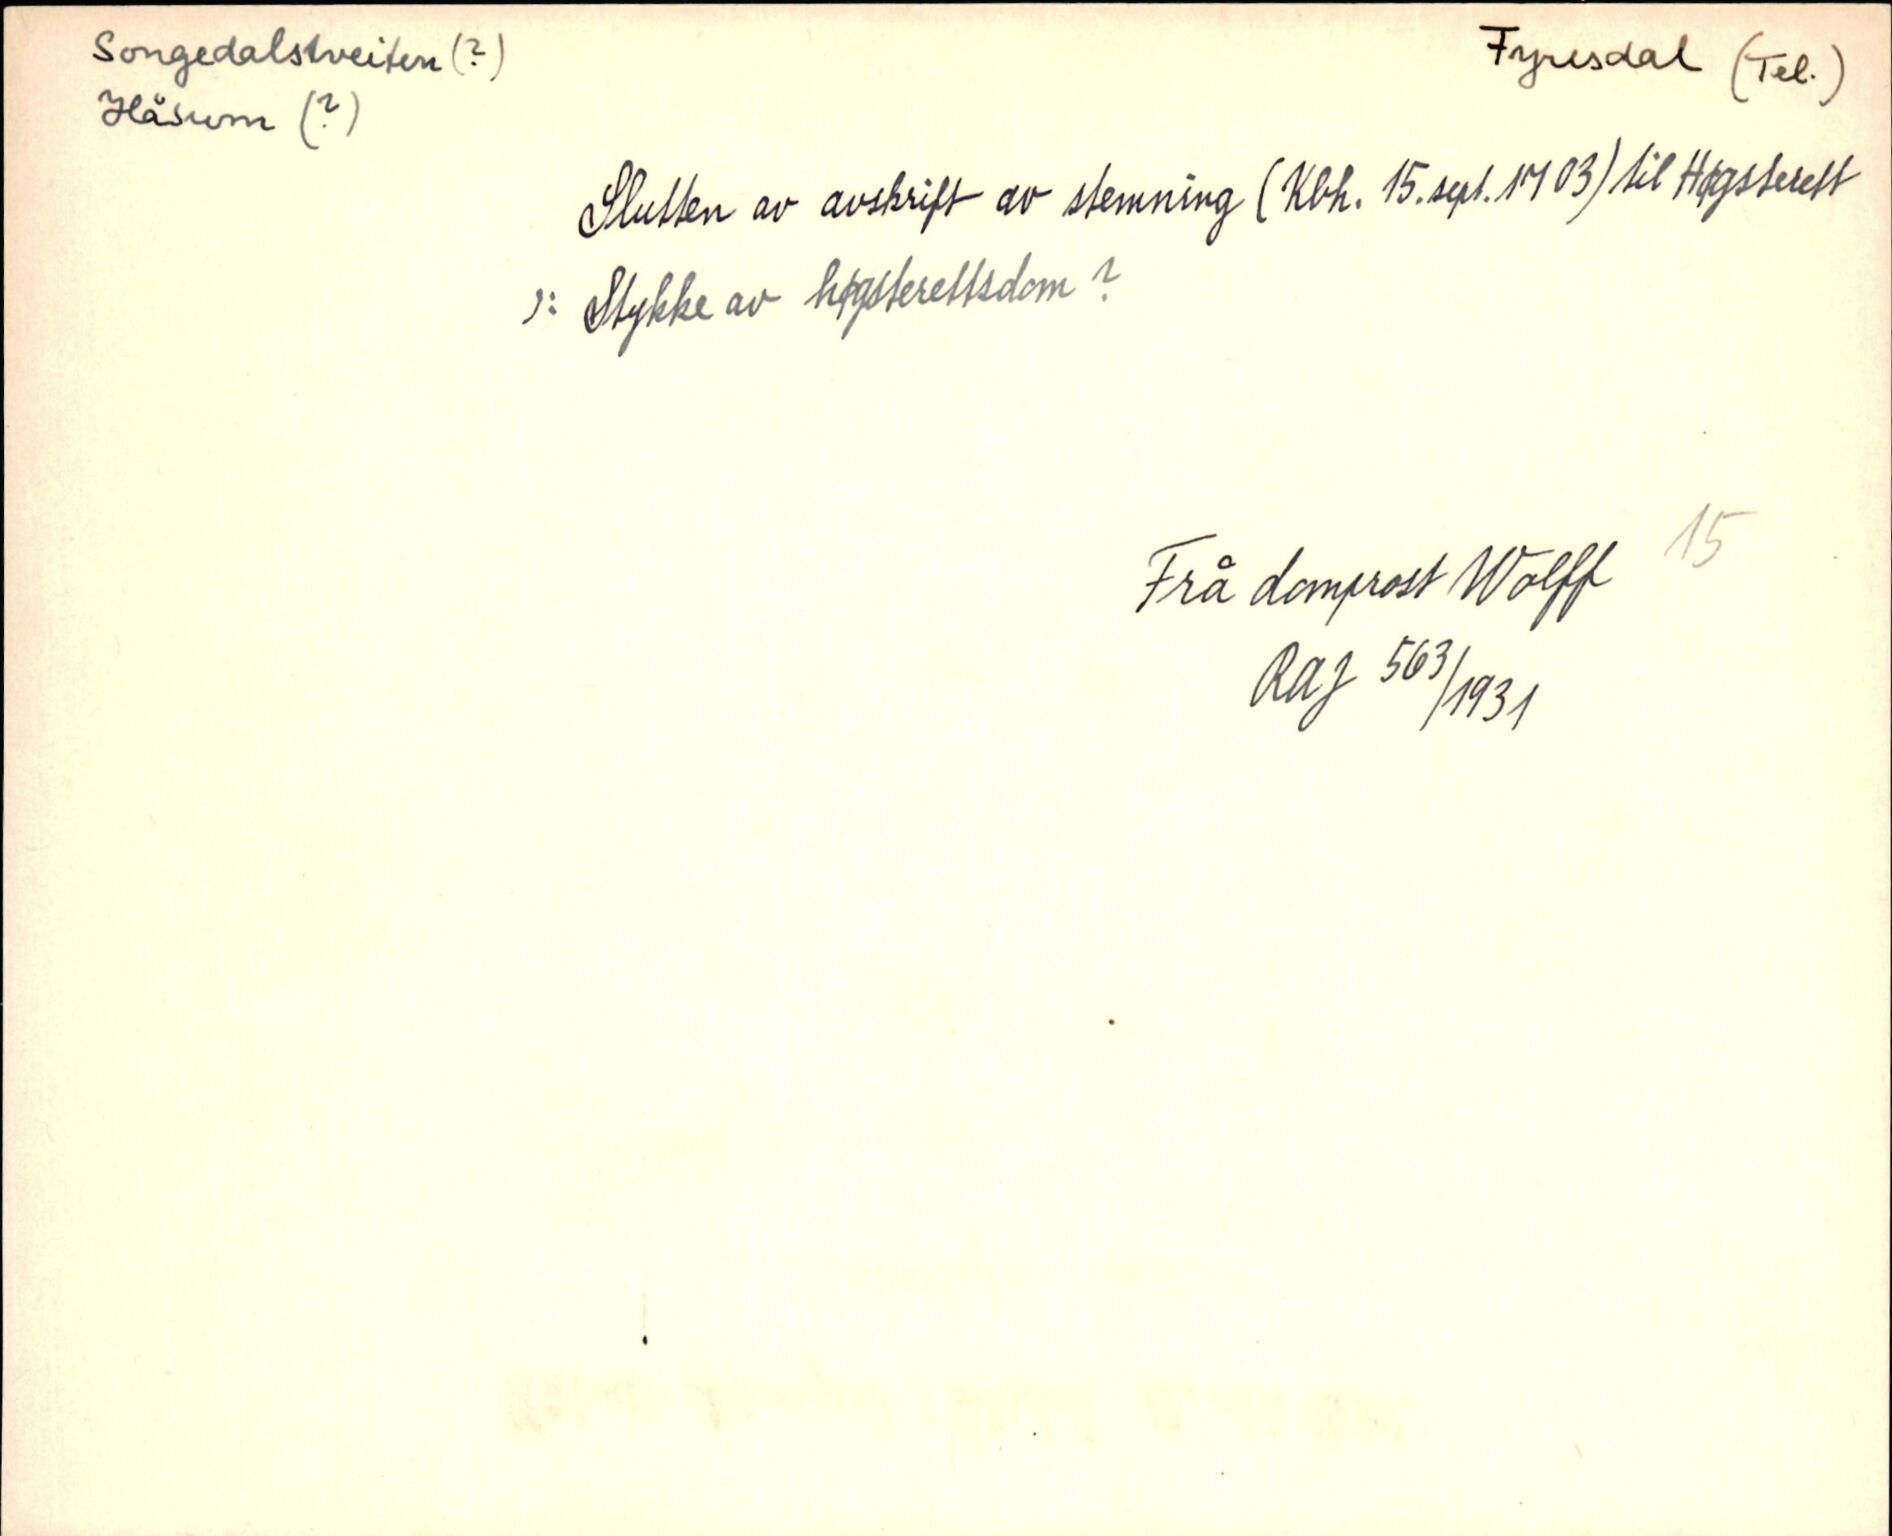 Songedalstveiten (?)
Fyresdal (Tel.)
Håsum (?)
Slutten av avskrift av stemning (Kbh. 15. sept. 1703) til Høgsterett
): Stykke av høgsterettsdom?
15
Frå domprost Wolff
RAJ 563/1931